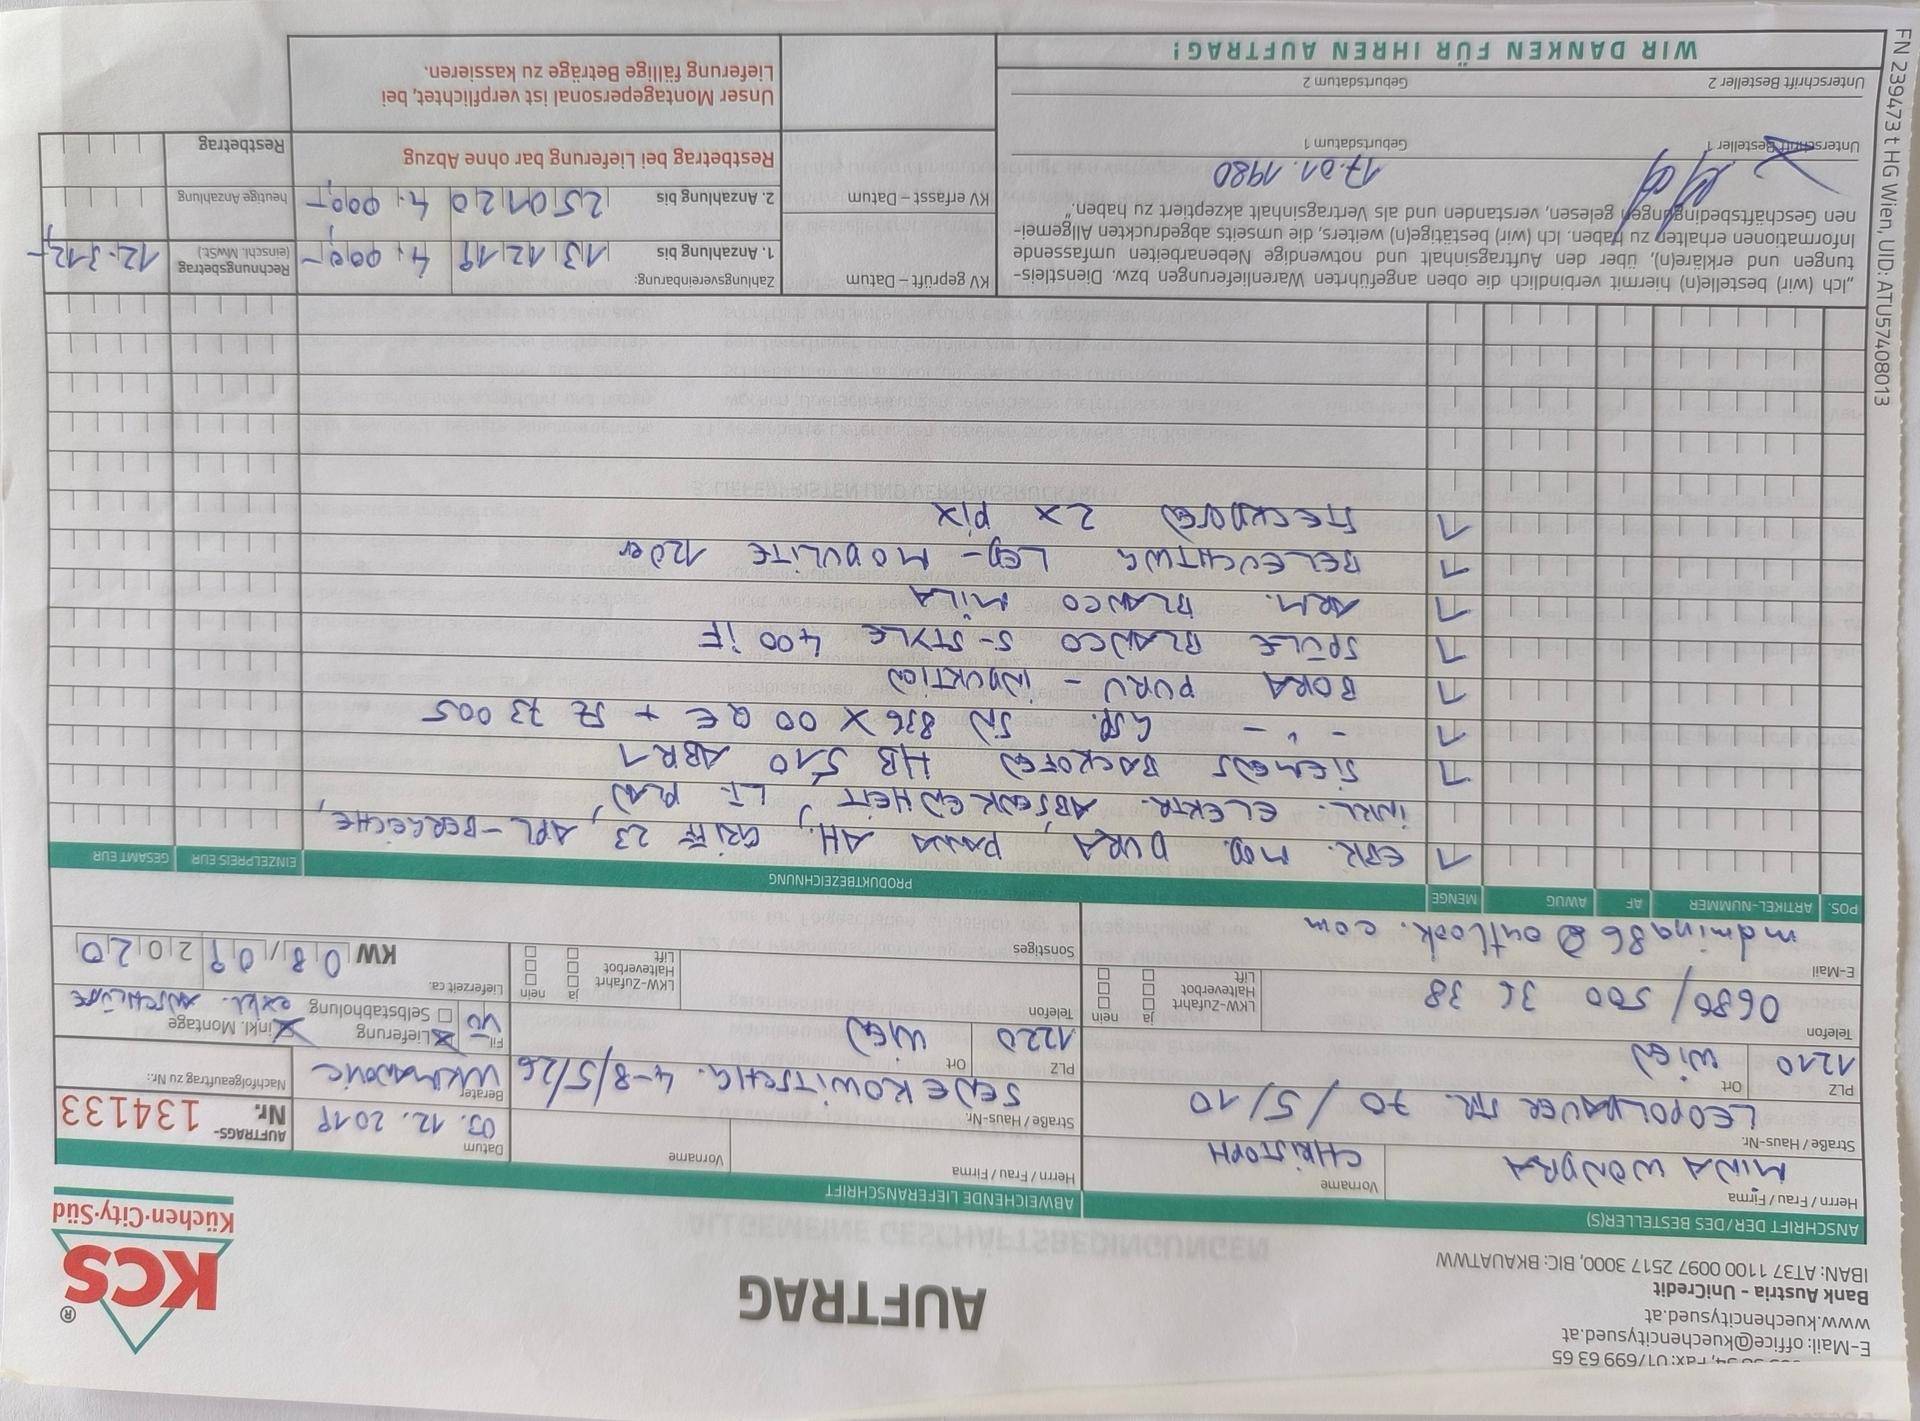 E-Mail: office@kuechencitysued.at
www.kuechencitysued.at
Bank Austria - UniCredit
IBAN: AT37 1100 0097 2517 3000, BIC: BKAUATWW
AUFTRAG
KCS®
Küchen·City·Süd
ALLGEMEINE GESCHÄFTSBEDINGUNGEN
ANSCHRIFT DER/DES BESTELLER(S)
Herrn / Frau / Firma
Vorname
MINA WONDRA
CHRISTOPH
Straße / Haus-Nr.
LEOPOLDAUER STR. 70 / 5/10
PLZ
Ort
1210
WIEN
Telefon
0680/ 500 36 38
LKW-Zufahrt
Halteverbot
Lift
ja
nein
E-Mail
mdmina86@outlook.com
ABWEICHENDE LIEFERANSCHRIFT
Herrn / Frau / Firma
Vorname
Straße / Haus-Nr.
SENEKOWITSCHG. 4-8/5/26
PLZ
Ort
1220
WIEN
Telefon
LKW-Zufahrt
Halteverbot
Lift
ja
nein
Sonstiges
Datum
AUFTRAGS-
Nr.
134133
03. 12. 2019
Berater
Nachfolgeauftrag zu Nr.:
Fil
Lieferung
inkl. Montage
Selbstabholung
exkl. ANSCHLÜSSE
Lieferzeit ca.
KW 08/09 2020
POS.
ARTIKEL-NUMMER
AF
AWUG
MENGE
PRODUKTBEZEICHNUNG
EINZELPREIS EUR
GESAMT EUR
1 EBK. MOD. DURA PANA AH, GRIFF 23, APL-BERLEICHE,
INKL. ELEKTR. ABSENKENHEIT, LT. PLAN
1 SIEMENS BACKOFEN HB 510 ABR1
1 - " - GSP. SN 836 X 00 QE + SZ 73005
1 BORA PURU - INDUKTION
1 SPÜLE BLANCO S-STYLE 400 iF
1 ARM. BLANCO MILA
1 BELEUCHTUNG LED - MODULITE 120er
1 STECKDOSEN 2x PIX
„Ich (wir) bestelle(n) hiermit verbindlich die oben angeführten Warenlieferungen bzw. Dienstleis-
tungen und erkläre(n), über den Auftragsinhalt und notwendige Nebenarbeiten umfassende
Informationen erhalten zu haben. Ich (wir) bestätige(n) weiters, die umseits abgedruckten Allgemei-
nen Geschäftsbedingungen gelesen, verstanden und als Vertragsinhalt akzeptiert zu haben."
17.01.1980
Unterschrift Besteller 1
Geburtsdatum 1
Unterschrift Besteller 2
Geburtsdatum 2
WIR DANKEN FÜR IHREN AUFTRAG!
KV geprüft – Datum
KV erfasst – Datum
Zahlungsvereinbarung:
1. Anzahlung bis
13 12 19 4.000,-
2. Anzahlung bis
25 01 20 4.000,-
Restbetrag bei Lieferung bar ohne Abzug
Unser Montagepersonal ist verpflichtet, bei
Lieferung fällige Beträge zu kassieren.
Rechnungsbetrag
(einschl. MwSt.)
12.312,-
heutige Anzahlung
Restbetrag
FN 239473 t HG Wien, UID: ATU57408013